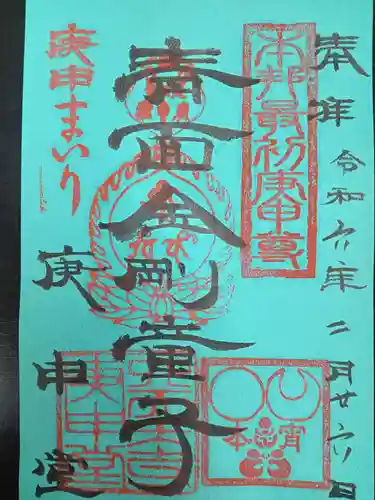 奉拝
令和六年二月廿六日
本邦最初庚申尊
青面金剛童子
庚申まいり
庚申堂